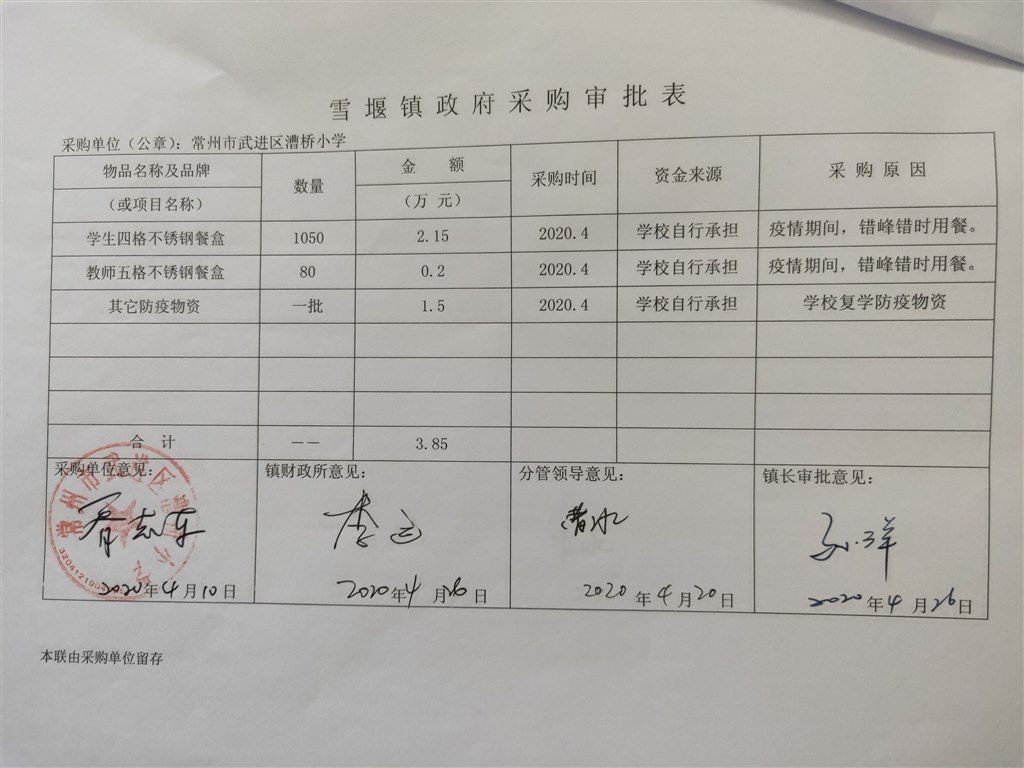 雪堰镇政府采购审批表
采购单位（公章）：常州市武进区漕桥小学
物品名称及品牌
（或项目名称）
数量
金 额
（万 元）
采购时间
资金来源
采 购 原 因
学生四格不锈钢餐盒 1050 2.15 2020.4 学校自行承担 疫情期间，错峰错时用餐。
教师五格不锈钢餐盒 80 0.2 2020.4 学校自行承担 疫情期间，错峰错时用餐。
其它防疫物资 一批 1.5 2020.4 学校自行承担 学校复学防疫物资
合 计 —— 3.85
采购单位意见： 镇财政所意见： 分管领导意见： 镇长审批意见：
常州市武进区
2020年4月10日 2020年4月26日 2020年4月20日 2020年4月26日
本联由采购单位留存